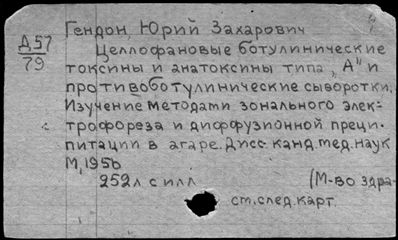 Гендон, Юрий Захарович
Д57
79
Целлофановые ботулинические
токсины и анатоксины типа „А" и
противоботулинические сыворотки.
Изучение методами зонального элек-
трофореза и диффузионной преци-
питации в агаре. Дисс. канд. мед. наук
М, 1956
252л с илл (М-во здра-
ст. след. карт.